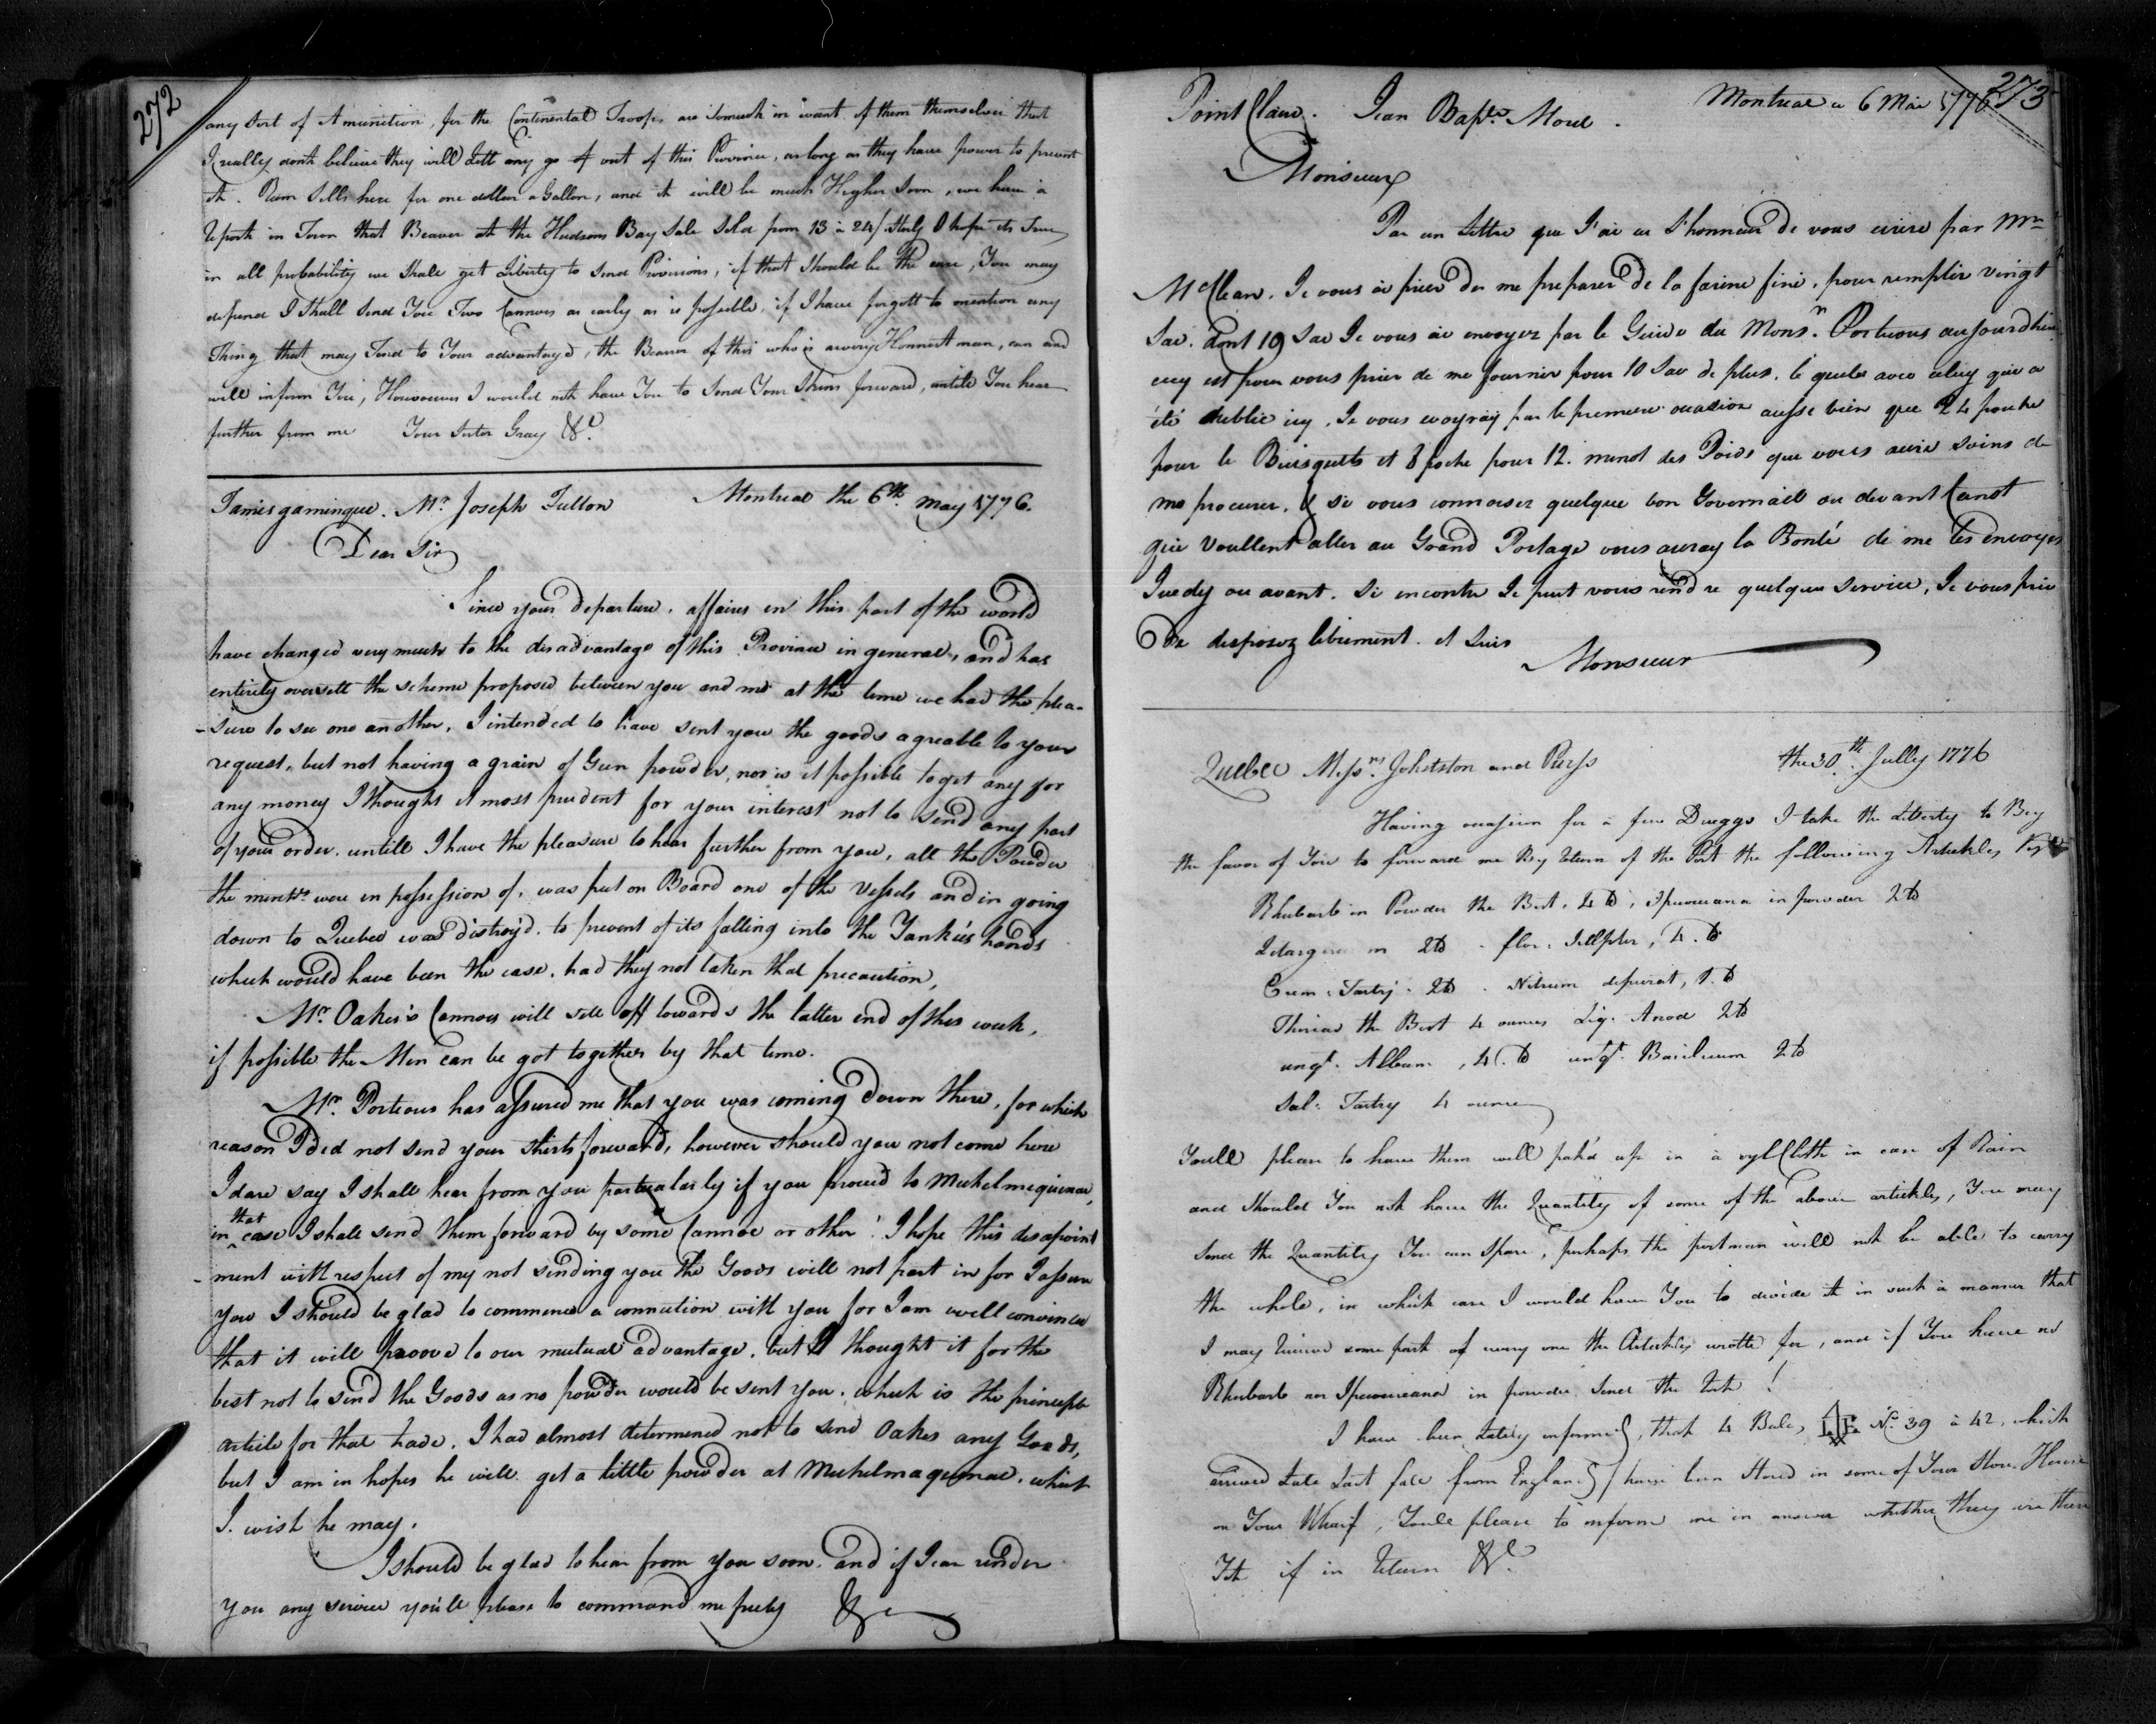 272
any sort of Amunition, for the Continental Troops are somuch in want of them themselves that
I really dont believe they will Lett any go of out of this Province, as long as they have power to prevent
it. Rum Sells here for one dollar a Gallon, and it will be much Higher Soon, we have a
report in Town that Beaver at the Hudsons Bay Sale Sold from 13 à 24/ Sterlg I hope its True
in all probability we Shall get Liberty to Send Provisions, if that Should be the case, You may
depend I Shall Send You Two Cannoes as early as is possible, if I have forgott to mention any
Thing that may Tend to Your advantage, the Bearer of this who is a very Honnest man, can and
will inform You, Howsoever I would not have You to Send Your Skins forward, untile You hear
further from me Your Sister Gray &c.
Tamisgamingue. Mr. Joseph Fulton Montreal the 6th. may 1776.
Dear Sir
Since your departure, affaires in this part of the world
have changed very much to the disadvantage of this Province in general, and has
entirely oversett the scheme proposed between you and me at the time we had the plea-
-sure to see one another, I intended to have sent you the goods agreable to your
request, but not having a grain of Gun powder, nor is it possible to get any for
any money I thought it most prudent for your interest not to send any part
of your order. untill I have the pleasure to hear further from you, all the Powder
the merchts were in possession of, was put on Board one of the Vessels and in going
down to Quebec was distroy'd. to prevent of its falling into the Yankies hands
which would have been the case, had they not taken that precaution,
Mr. Oakes's Cannoes will sett off towards the latter end of this week,
if possible the Men can be got together by that time.
Mr. Porteous has assured me that you was coming down there, for which
reason I did not send your shirts forward, however should you not come here
I dare say I shall hear from you particularly if you proceed to Michelmaquinac,
in that case I shall send them forward by some Cannoe or other! I hope this disapoint
-ment with respect of my not sending you the Goods will not part in for I assure
you I should be glad to commence a connection with you for I am well convinced
that it will proove to our mutual advantage, but I thought it for the
best not to send the Goods as no powder would be sent you. which is the principle
article for that trade. I had almost determened not to send Oakes any Goods,
but I am in hopes he will get a little powder at Michelmaquinac, which
I wish he may.
I should be glad to hear from you soon. and if I can render
you any service you'll please to command me freely &c
273
Point Claire. Jean Bapte. Montreal ce 6 Mai 1776
Monsieur
Par un Lettre que J'ai eu L'honneur de vous ecrire par Mr
McClean. Je vous ai prier de me preparer de la farine fine, pour remplir vingt
Sac. dont 19 Sac Je vous ai envoyez par le Guide du Monsr. Porteous aujourdhui
cecy est pour vous prier de me fournir pour 10 Sac de plus. le quele avec celuy qui a
été oublié icy, Je vous envoyray par le premiere occasion aussi bien que 24 poche
pour le Buisquits et 8 poche pour 12. minot des Poids que vous aurè soins de
me procurer. & si vous connoisez quelque bon Governail ou devant Canot
qui Voullent aller au Grand Portage vous auray la Bonté de me les envoyer
Jeudy ou avant. Si encontre Je peut vous rendre quelque Service, Je vous prie
de disposez librement. et Suis
Monsieur
Quebec Messrs. Johnston and Purss the 30th. Jully 1776
Having occasion for a few Druggs I take the Liberty to Beg
the favor of You to forward me By return of the Post the following Artickles
Rhubarb in Powder the Best, 4 lb, Ipecacuana in powder 2 lb
2 lb. flor. Sullpher, 4. lb
Crem. Tartry. 2 lb. Nitrum depurat, 1. lb
Theriac the Best 4 ounces Liq. Anod 2 lb
ungt. Album, 4. lb ungt. Basilicum 2 lb
Sal. Tartry 4 ounces
Youll please to have them well pak'd up in a oyl Cloth in case of Rain
and should You not have the Quantity of some of the above artickles, You may
Send the Quantity You can Spare, perhaps the postman will not be able to carry
the whole, in which case I would have You to devide it in such a manner that
I may receive some part of every one the Artickles wrotte for, and if You have no
Rhubarb nor Ipecacuana in powder Send the !
I have been Lately informed, that 4 Bales No. 39 à 42, which
arrived Late Last fall from England have been Stored in some of Your Store House
on Your Wharf, Youll please to inform me in answer whether they are there
Yet if in return &c.